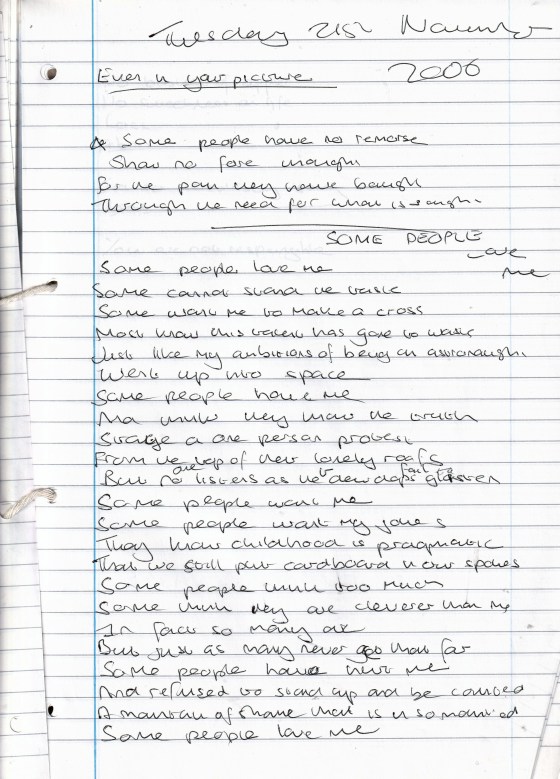 Tuesday 21st November
2006
Even in your picture
Some people have no remorse
Show no fore thought
For the pain they have bought
Through the need for what is sought.
SOME PEOPLE
love
me
Some people love me
Some cannot stand the taste
Some want me to make a cross
Most know this talent has gone to waste
Just like my ambitions of being an astronaught.
Went up into space
Some people have me
And think they know the truth
Stage a one person protest
From the top of their lonely roofs
But no one listens as the dew drops fail to glisten
Some people want me
Some people want my jokes
They know childhood is pragmatic
That we still put cardboard in our spokes
Some people think too much
Some think they are cleverer than me
In fact so many are
But just as many never get that far
Some people have hurt me
And refused to stand up and be counted
A mountain of shame that is
Some people love me